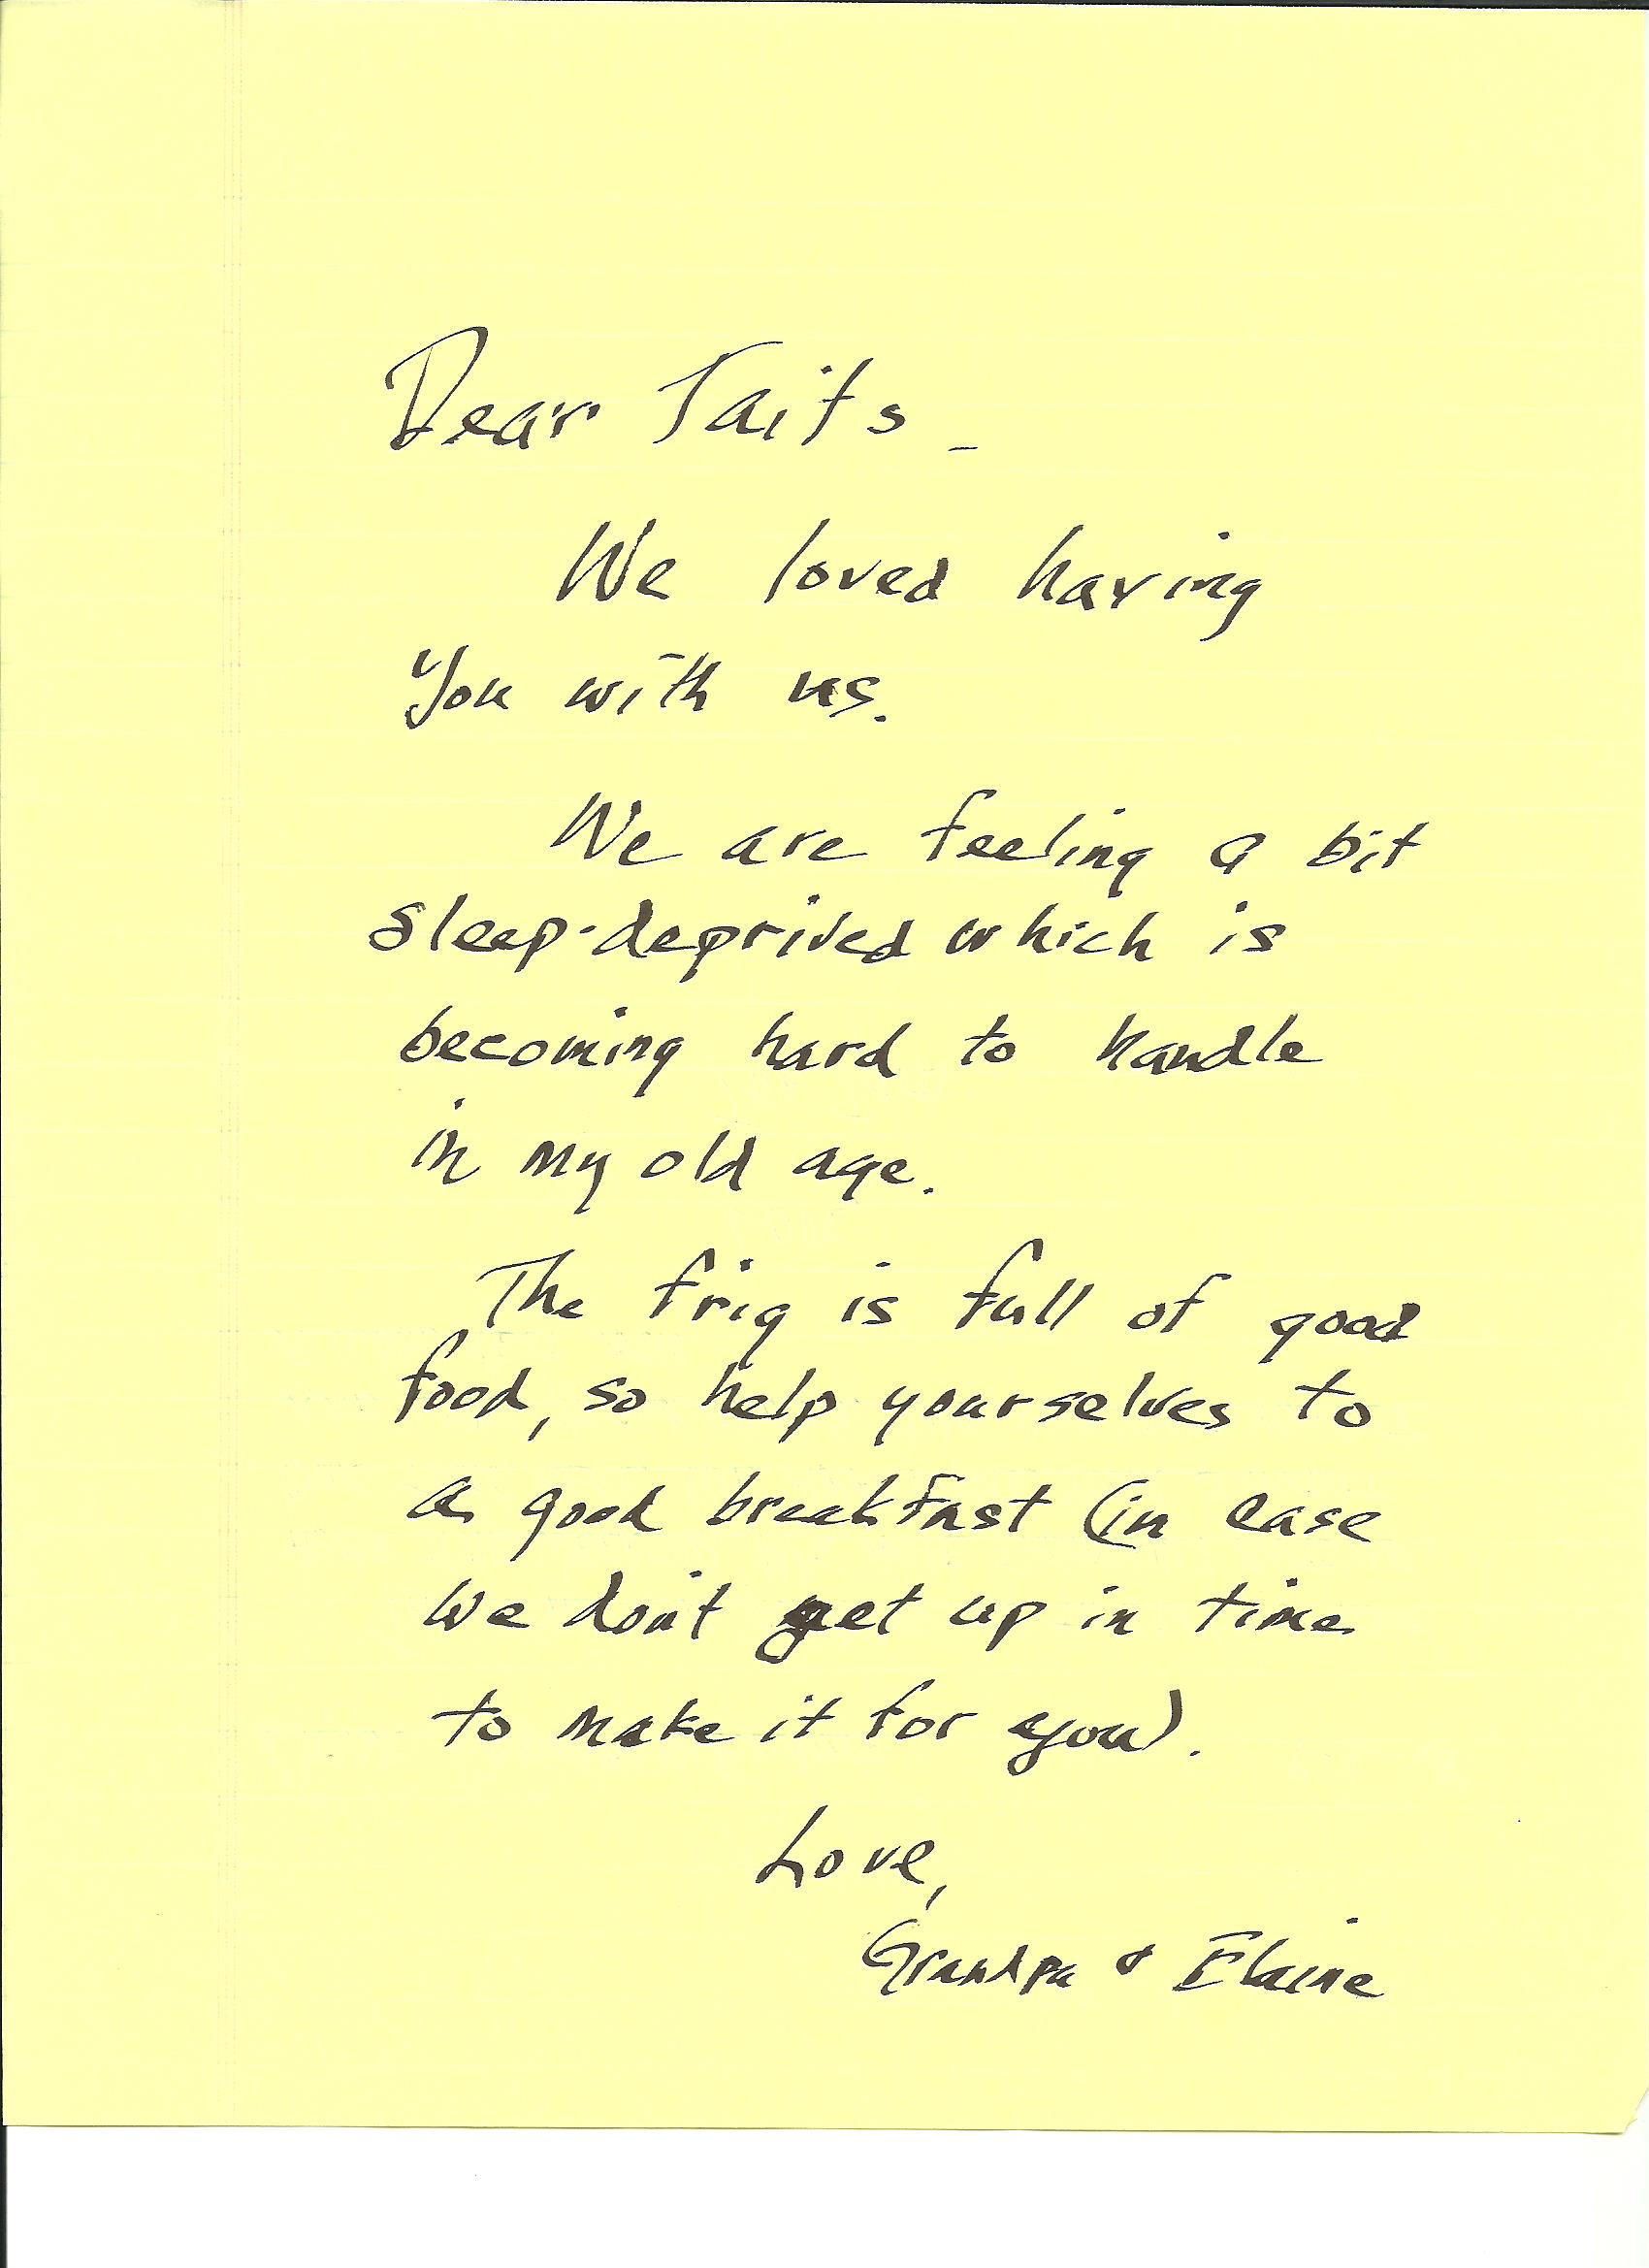 Dear Taits -
We loved having
you with us.
We are feeling a bit
sleep-deprived which is
becoming hard to handle
in my old age.
The frig is full of good
food, so help yourselves to
a good breakfast (in case
we don't get up in time
to make it for you).
Love,
Grandpa & Elaine